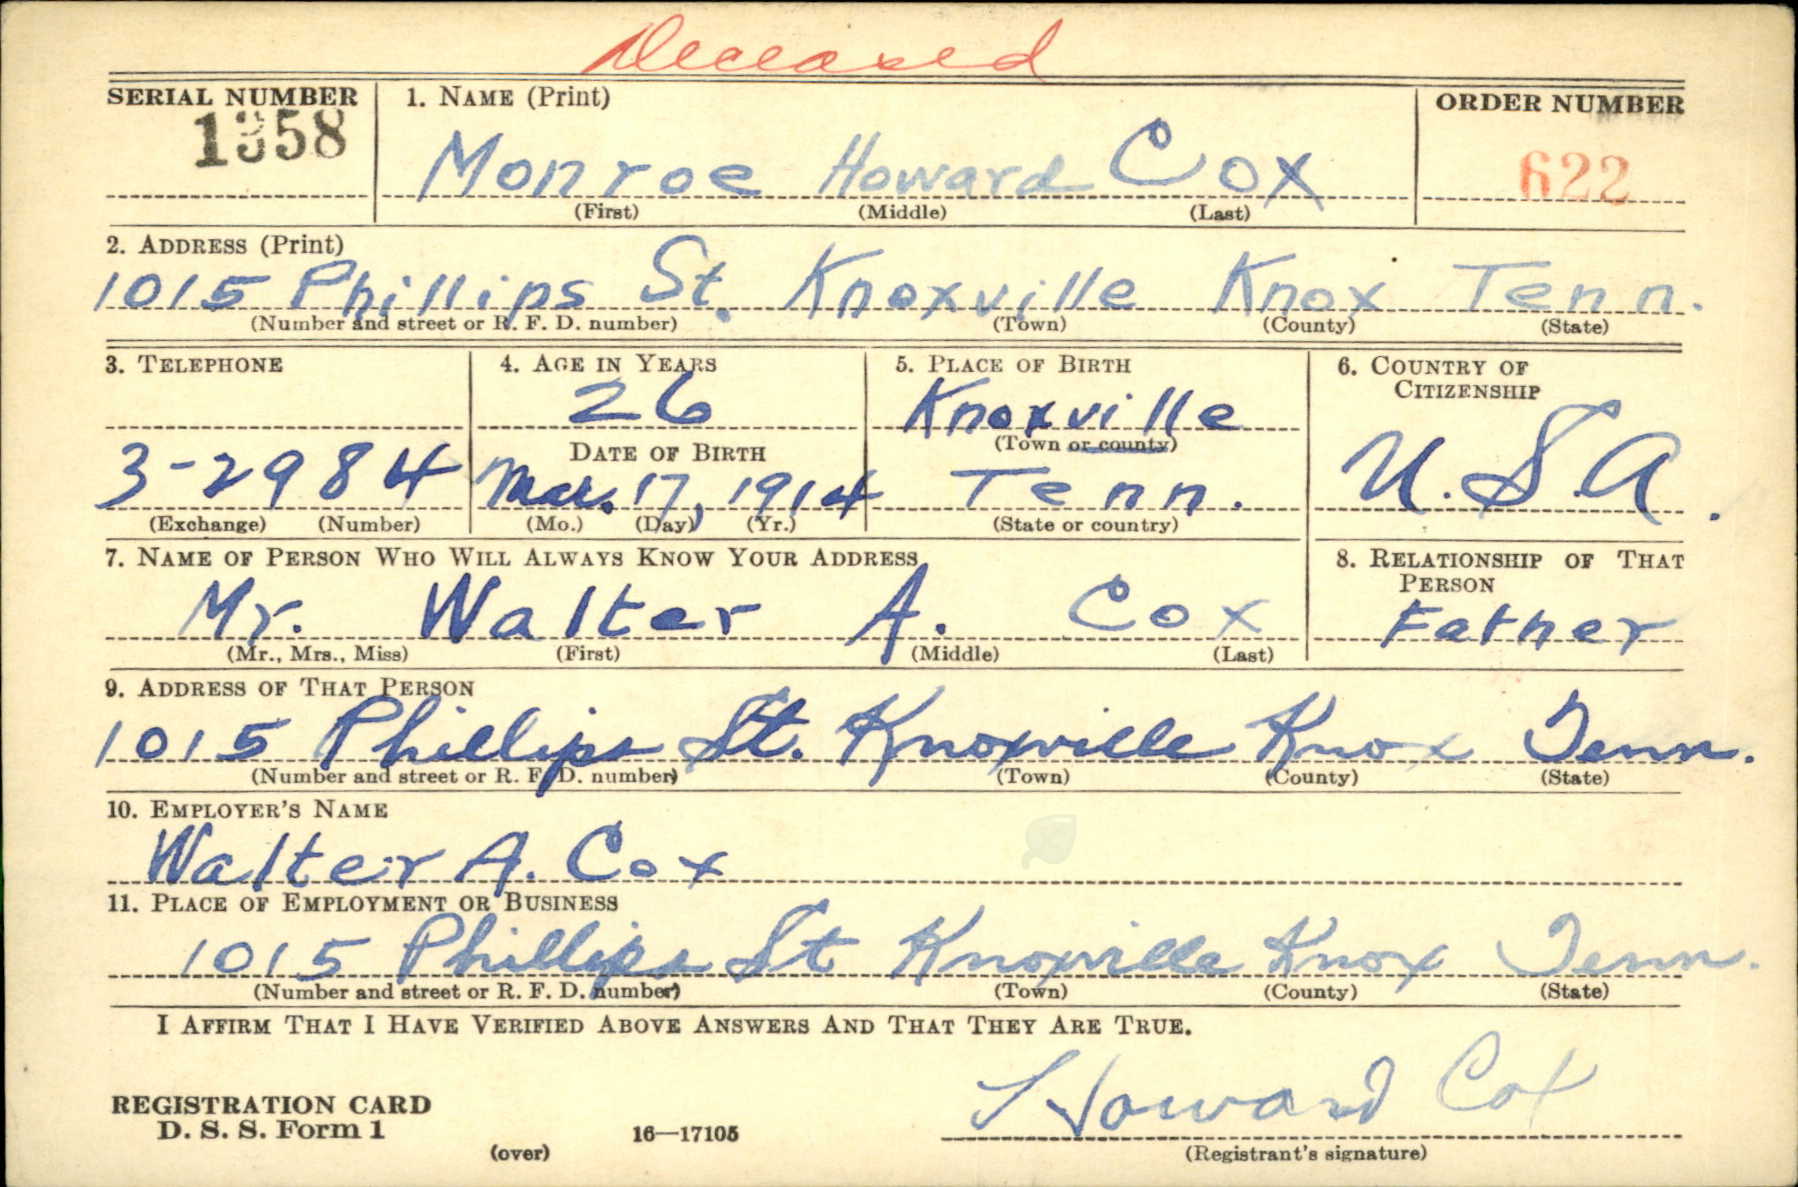 Deceased
SERIAL NUMBER 1. NAME (Print) ORDER NUMBER
1358 Monroe Howard Cox 622
(First) (Middle) (Last)
2. ADDRESS (Print)
1015 Phillips St. Knoxville Knox Tenn.
(Number and street or R. F. D. number) (Town) (County) (State)
3. TELEPHONE 4. AGE IN YEARS 5. PLACE OF BIRTH 6. COUNTRY OF
CITIZENSHIP
26 Knoxville
DATE OF BIRTH (Town or county)
3-2984 Mar. 17, 1914 Tenn. U.S.A.
(Exchange) (Number) (Mo.) (Day) (Yr.) (State or country)
7. NAME OF PERSON WHO WILL ALWAYS KNOW YOUR ADDRESS 8. RELATIONSHIP OF THAT
PERSON
Mr. Walter A. Cox Father
(Mr., Mrs., Miss) (First) (Middle) (Last)
9. ADDRESS OF THAT PERSON
1015 Phillips St. Knoxville Knox Tenn.
(Number and street or R. F. D. number) (Town) (County) (State)
10. EMPLOYER'S NAME
Walter A. Cox
11. PLACE OF EMPLOYMENT OR BUSINESS
1015 Phillips St Knoxville Knox Tenn.
(Number and street or R. F. D. number) (Town) (County) (State)
I AFFIRM THAT I HAVE VERIFIED ABOVE ANSWERS AND THAT THEY ARE TRUE.
Howard Cox
REGISTRATION CARD
D. S. S. Form 1 16—17105
(over) (Registrant's signature)